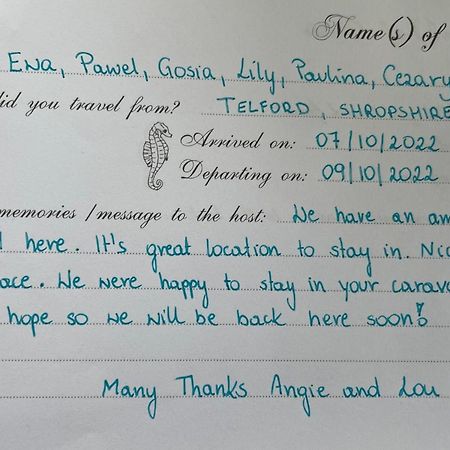 Name(s) of
Ewa, Pawel, Gosia, Lily, Paulina, Cezary
did you travel from? TELFORD, SHROPSHIRE
Arrived on: 07/10/2022
Departing on: 09/10/2022
memories / message to the host: We have an am
here. It's great location to stay in. Nic
ace. We were happy to stay in your carava
hope so we will be back here soon!
Many Thanks Angie and Lou